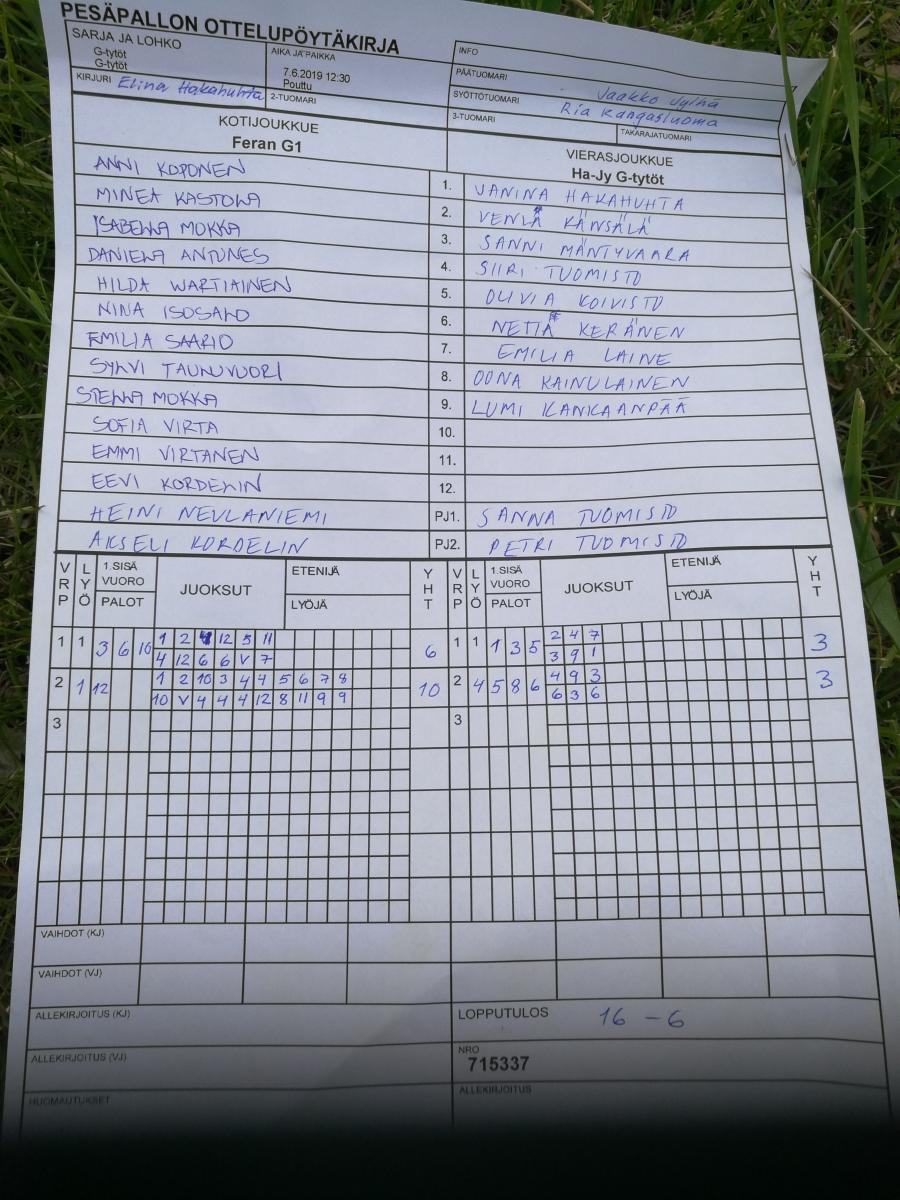 PESÄPALLON OTTELUPÖYTÄKIRJA
SARJA JA LOHKO
G-tytöt
G-tytöt
AIKA JA PAIKKA
7.6.2019 12:30
Pouttu
INFO
PÄÄTUOMARI Jaakko Jylhä
KIRJURI Elina Hakahuhta
2-TUOMARI
SYÖTTÖTUOMARI Ria Kangasluoma
3-TUOMARI
TAKARAJATUOMARI
KOTIJOUKKUE
Feran G1
VIERASJOUKKUE
Ha-Jy G-tytöt
ANNI KOPONEN 1. JANINA HAKAHUHTA
MINEA KASTOLLA 2. VENLA KÄNSÄLÄ
ISABELLA MOKKA 3. SANNI MÄNTYVAARA
DANIELA ANTUNES 4. SIIRI TUOMISTO
HILDA WARTIAINEN 5. OLIVIA KOIVISTO
NINA ISOSALO 6. NETTA KERÄNEN
EMILIA SAARIO 7. EMILIA LAINE
SYLVI TAUNUVUORI 8. OONA KAINULAINEN
STELLA MOKKA 9. LUMI KANKAANPÄÄ
SOFIA VIRTA 10.
EMMI VIRTANEN 11.
EEVI KORDELIN 12.
HEINI NEVLANIEMI PJ1. SANNA TUOMISTO
AKSELI KORDELIN PJ2. PETRI TUOMISTO
VRP LYÖ 1.SISÄ VUORO PALOT JUOKSUT ETENIJÄ LYÖJÄ YHT VRP LYÖ 1.SISÄ VUORO PALOT JUOKSUT ETENIJÄ LYÖJÄ YHT
1 1 3 6 10 1 2 4 12 5 11 6 1 1 1 3 5 2 4 7 3
4 12 6 6 V 7 3 9 1
2 1 12 1 2 10 3 4 4 5 6 7 8 10 2 4 5 8 6 4 9 3 3
10 V 4 4 4 12 8 11 9 9 6 3 6
3 3
VAIHDOT (KJ)
VAIHDOT (VJ)
ALLEKIRJOITUS (KJ)
LOPPUTULOS 16 - 6
ALLEKIRJOITUS (VJ)
NRO
715337
HUOMAUTUKSET
ALLEKIRJOITUS